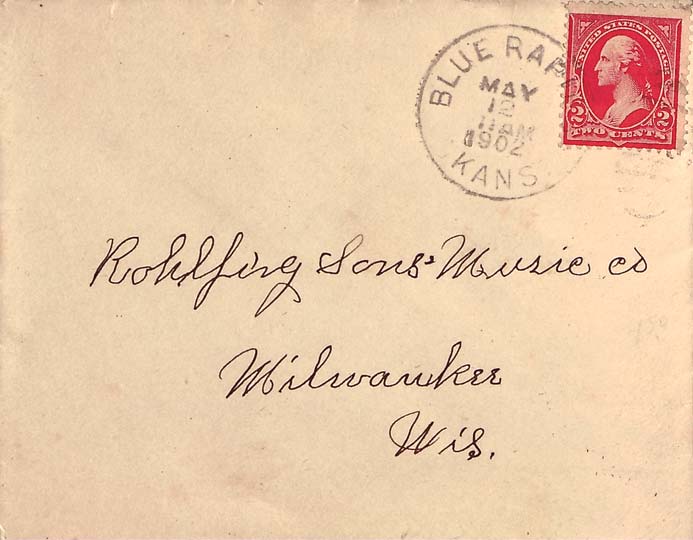 BLUE RAPI
MAY
12
11AM
1902
KANS.
UNITED STATES POSTAGE
2 2
TWO CENTS
Rohlfing Sons' Music co
Milwaukee
Wis.